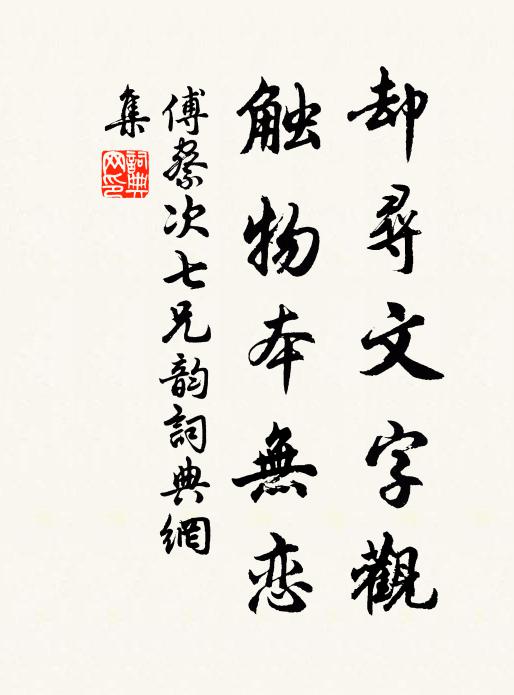 却尋文字觀
触物本無恋
傅察次七兄韵詞典網
集
詞典
网印